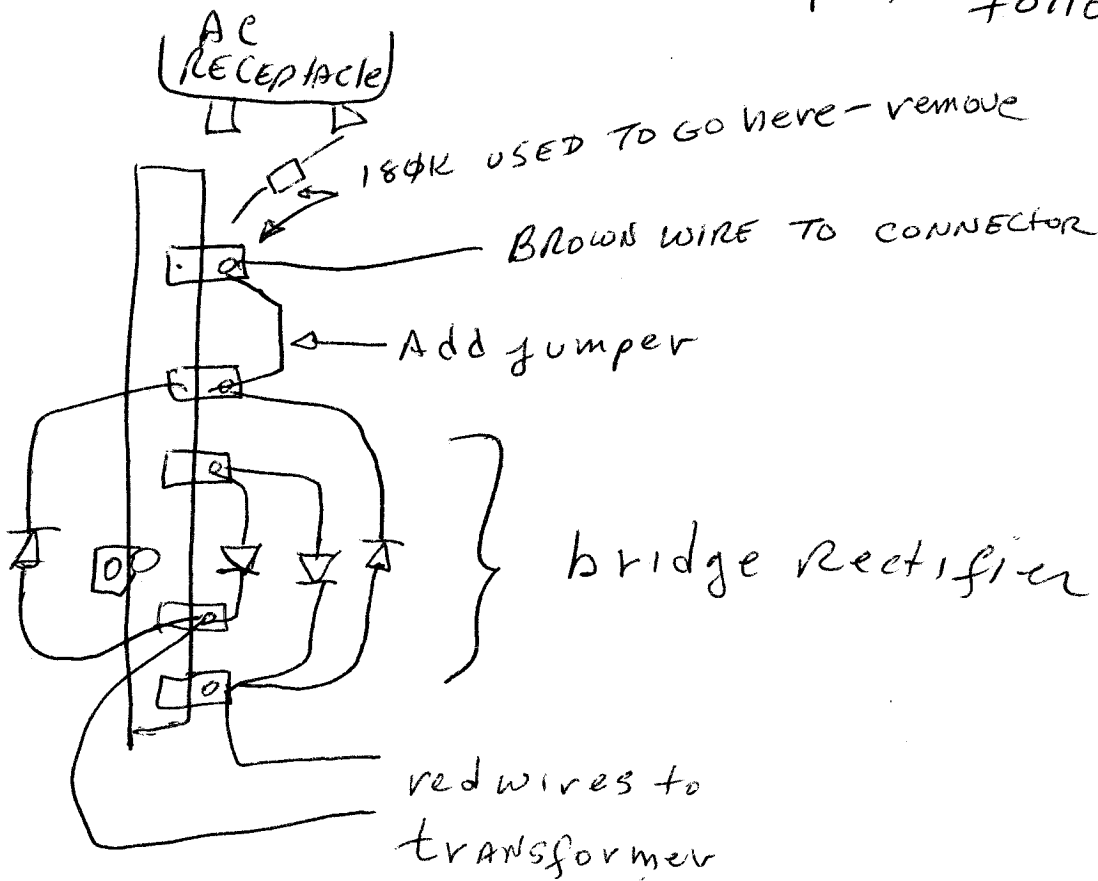 AC
RECEPTACLE
180K USED TO GO here - remove
BROWN WIRE TO CONNECTOR
Add jumper
bridge Rectifier
red wires to
transformer